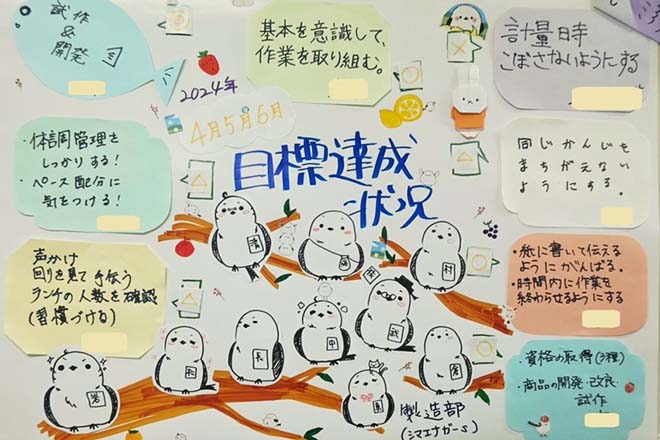 試作
&
開発
基本を意識して、
作業を取り組む。
計量時
こぼさないようにする
2024年
4月5月6月
目標達成
状況
・体調管理を
しっかりする!
・ペース配分に
気をつける!
同じかんじも
まちがえない
ようにする。
声かけ
回りを見て手伝う
ランチの人数を確認
(習慣づける)
・紙に書いて伝える
ようにがんばる。
・時間内に作業を
終わらせるようにする
・資格の取得(3種)
・商品の開発・改良
試作
村
武
中
長
松
製造部
(シマエナガーs)